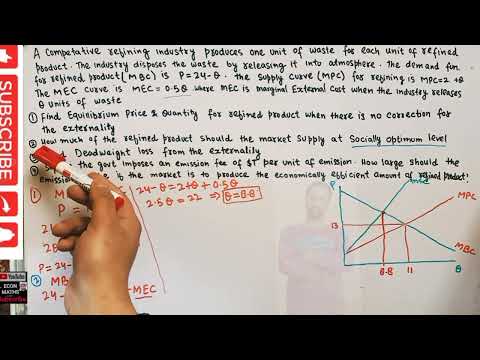 A Competative refining industry produces one unit of waste for each unit of refined
product. The industry disposes the waste by releasing it into atmosphere. The demand fun
for refined product (MBC) is P = 24-Q. The supply curve (MPC) for refining is MPC = 2+Q
The MEC curve is MEC = 0.5Q where MEC is marginal External Cost when the industry releases
Q Units of waste
① Find Equilibrium Price & Quantity for refined product when there is no correction for
the externality
② How much of the refined product should the market supply at Socially optimum level
Deadweight loss from the externality
the govt imposes an emission fee of $T per unit of emission. How large should the
emission is the market is to produce the economically efficient amount of refined product?
①
24-Q = 2+Q + 0.5Q
2.5Q = 22 ⇒ Q = 8.8
P = 24-
② MB
24-
MEC
P
MPC
13
MBC
8.8
11
Q
SUBSCRIBE
ECON
MATHS